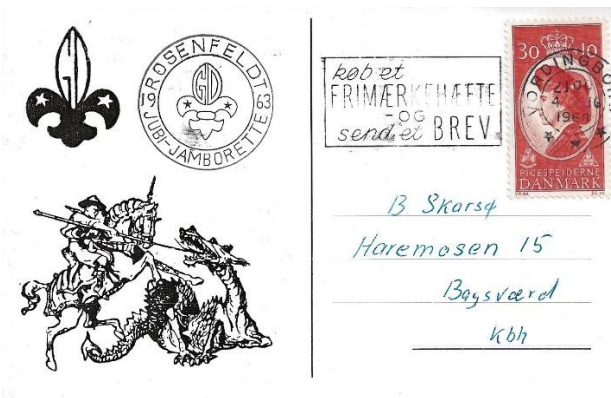 GD
ROSENFELDT
1963
JUBI-JAMBORETTE
GD
køb et
FRIMÆRKEHÆFTE
-OG
send et BREV
30 10
VORDINGB
1963
PIGESPEJDERNE
DANMARK
B Skarsø
Haremosen 15
Bagsværd
Kbh